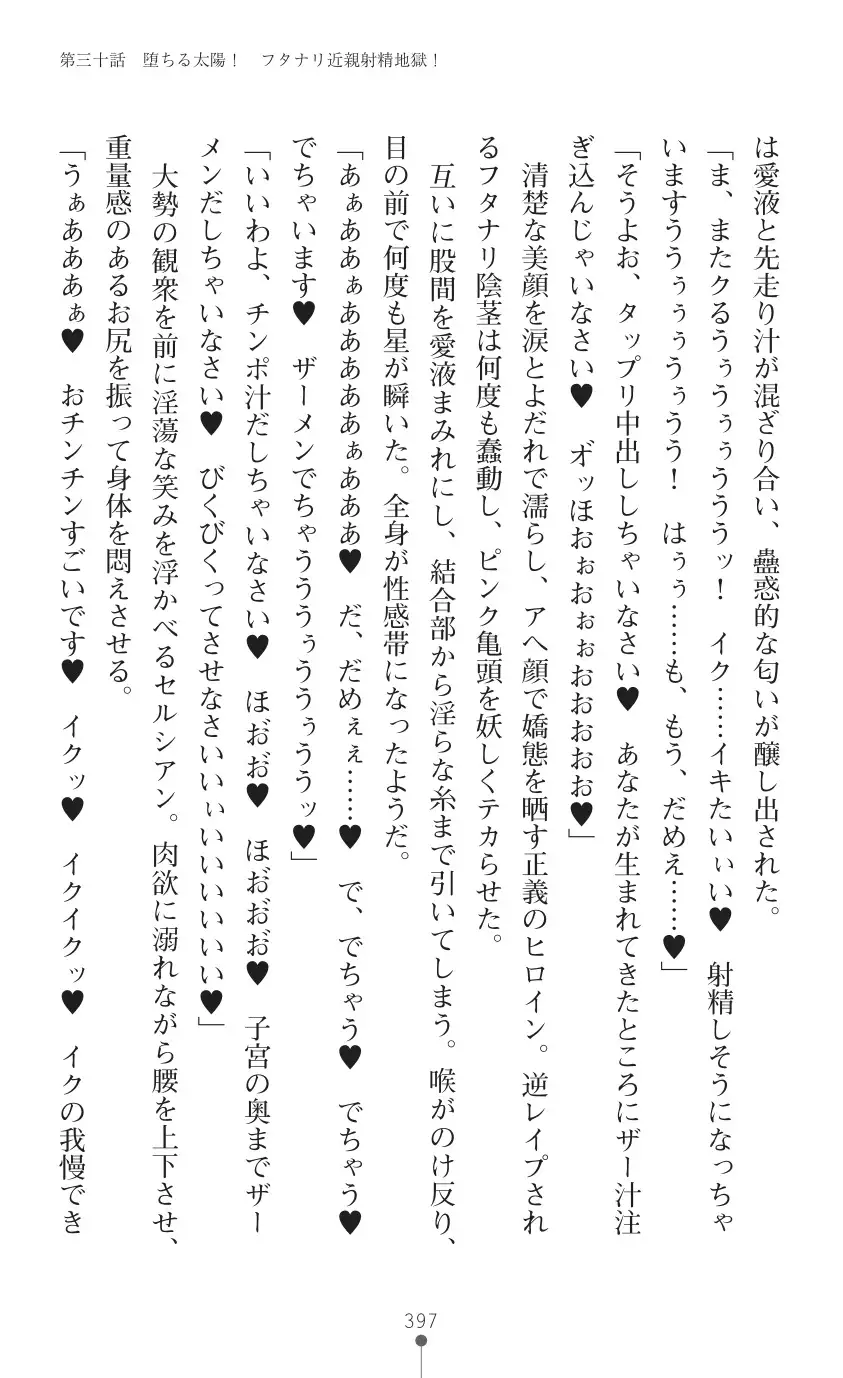 第三十話　堕ちる太陽！　フタナリ近親射精地獄！
は愛液と先走り汁が混ざり合い、蠱惑的な匂いが醸し出された。
「ま、またクるうぅうぅぅううッ！　イク……イキたいぃい♥　射精しそうになっちゃ
いますううぅぅぅうぅうう！　はぅぅ……も、もう、だめえ……♥」
「そうよお、タップリ中出ししちゃいなさい♥　あなたが生まれてきたところにザー汁注
ぎ込んじゃいなさい♥　オ゛ッほおぉおぉぉおおおおお♥」
　清楚な美顔を涙とよだれで濡らし、アヘ顔で嬌態を晒す正義のヒロイン。逆レイプされ
るフタナリ陰茎は何度も蠢動し、ピンク亀頭を妖しくテカらせた。
　互いに股間を愛液まみれにし、結合部から淫らな糸まで引いてしまう。喉がのけ反り、
目の前で何度も星が瞬いた。全身が性感帯になったようだ。
「あぁああぁああああああぁあああ♥　だ、だめぇぇ……♥　で、でちゃう♥　でちゃう♥
でちゃいます♥　ザーメンでちゃうううぅううぅううッ♥」
「いいわよ、チンポ汁だしちゃいなさい♥　ほお゛お゛♥　ほお゛お゛お゛♥　子宮の奥までザー
メンだしちゃいなさい♥　びくびくってさせなさいいぃいいいいいいい♥」
　大勢の観衆を前に淫蕩な笑みを浮かべるセルシアン。肉欲に溺れながら腰を上下させ、
重量感のあるお尻を振って身体を悶えさせる。
「うぁあああぁ♥　おチンチンすごいです♥　イクッ♥　イクイクッ♥　イクの我慢でき
397